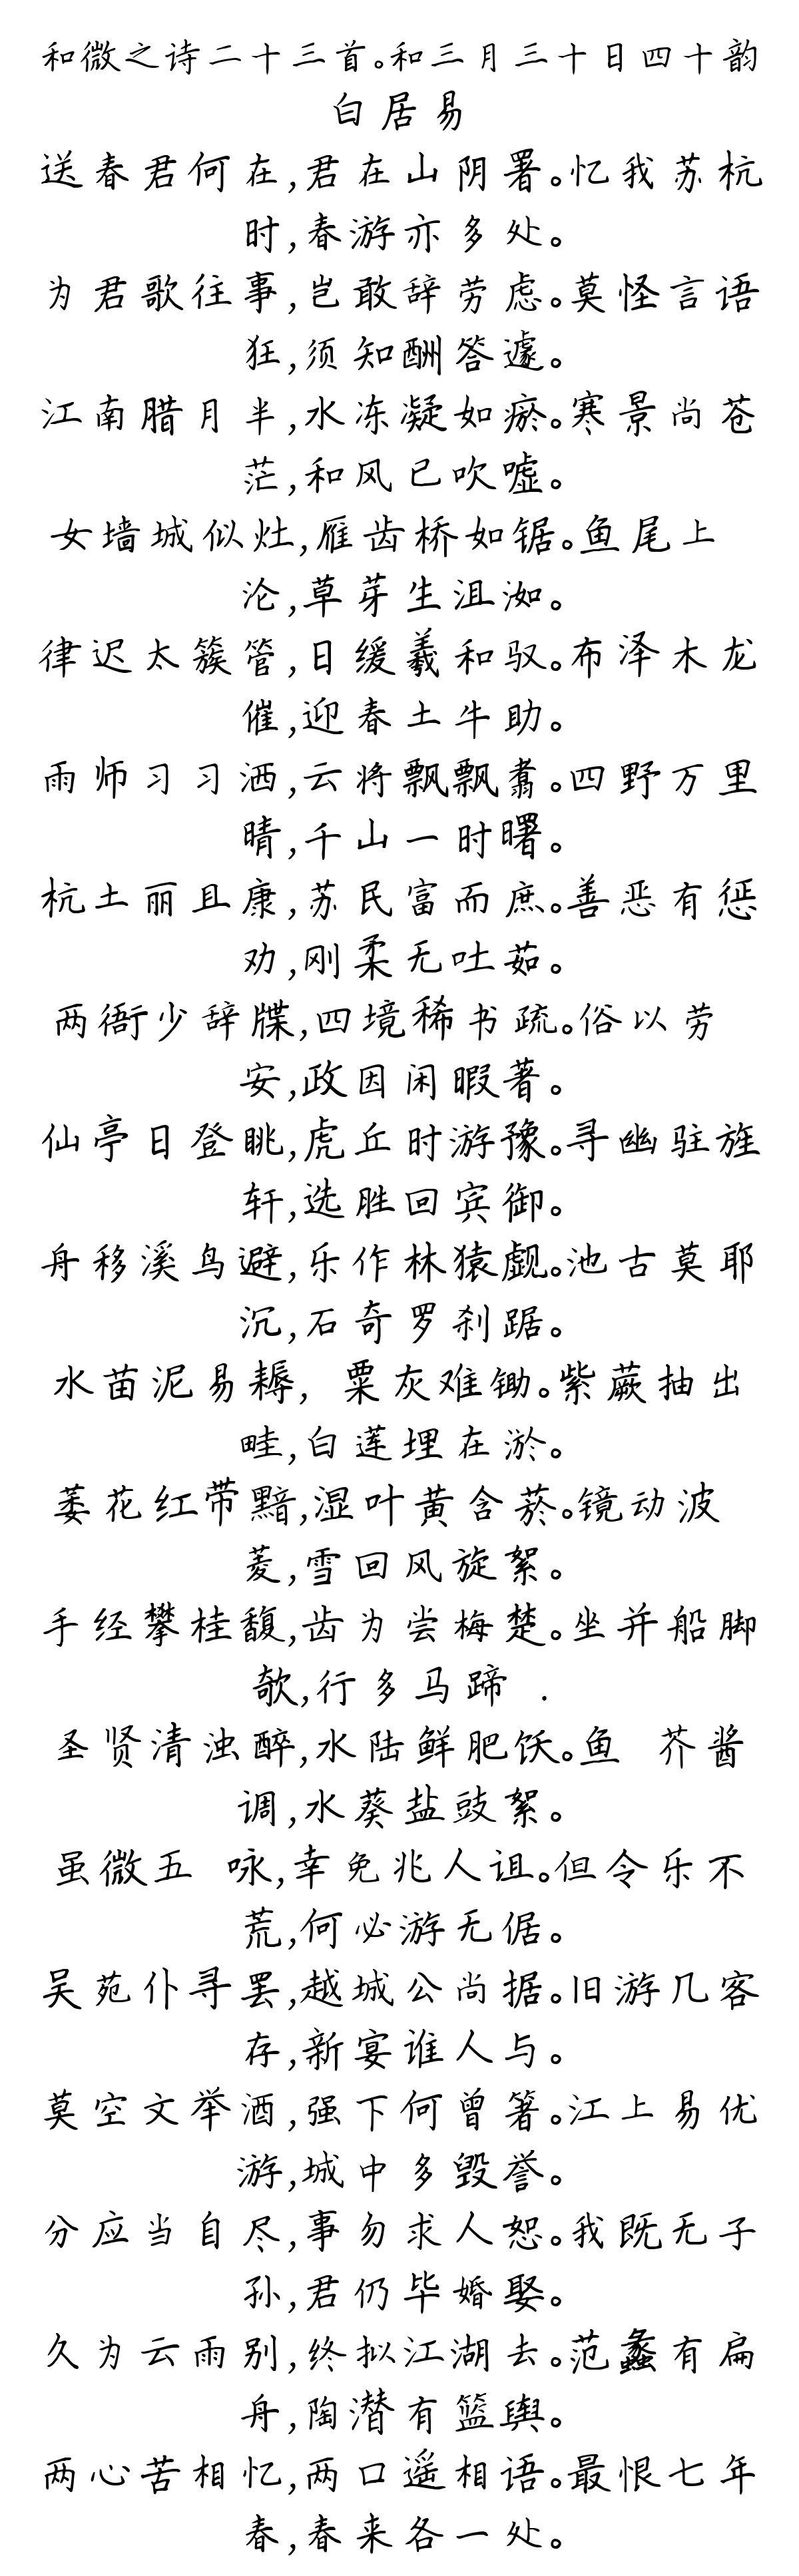 和微之诗二十三首。和三月三十日四十韵
白居易
送春君何在,君在山阴署。忆我苏杭
时,春游亦多处。
为君歌往事,岂敢辞劳虑。莫怪言语
狂,须知酬答遽。
江南腊月半,水冻凝如瘀。寒景尚苍
茫,和风已吹嘘。
女墙城似灶,雁齿桥如锯。鱼尾上
沦,草芽生沮洳。
律迟太簇管,日缓羲和驭。布泽木龙
催,迎春土牛助。
雨师习习洒,云将飘飘翥。四野万里
晴,千山一时曙。
杭土丽且康,苏民富而庶。善恶有惩
劝,刚柔无吐茹。
两衙少辞牒,四境稀书疏。俗以劳
安,政因闲暇著。
仙亭日登眺,虎丘时游豫。寻幽驻旌
轩,选胜回宾御。
舟移溪鸟避,乐作林猿觑。池古莫耶
沉,石奇罗刹踞。
水苗泥易耨, 粟灰难锄。紫蕨抽出
畦,白莲埋在淤。
萎花红带黯,湿叶黄含菸。镜动波
菱,雪回风旋絮。
手经攀桂馥,齿为尝梅楚。坐并船脚
欹,行多马蹄 .
圣贤清浊醉,水陆鲜肥饫。鱼 芥酱
调,水葵盐豉絮。
虽微五 咏,幸免兆人诅。但令乐不
荒,何必游无倨。
吴苑仆寻罢,越城公尚据。旧游几客
存,新宴谁人与。
莫空文举酒,强下何曾箸。江上易优
游,城中多毁誉。
分应当自尽,事勿求人恕。我既无子
孙,君仍毕婚娶。
久为云雨别,终拟江湖去。范蠡有扁
舟,陶潜有篮舆。
两心苦相忆,两口遥相语。最恨七年
春,春来各一处。